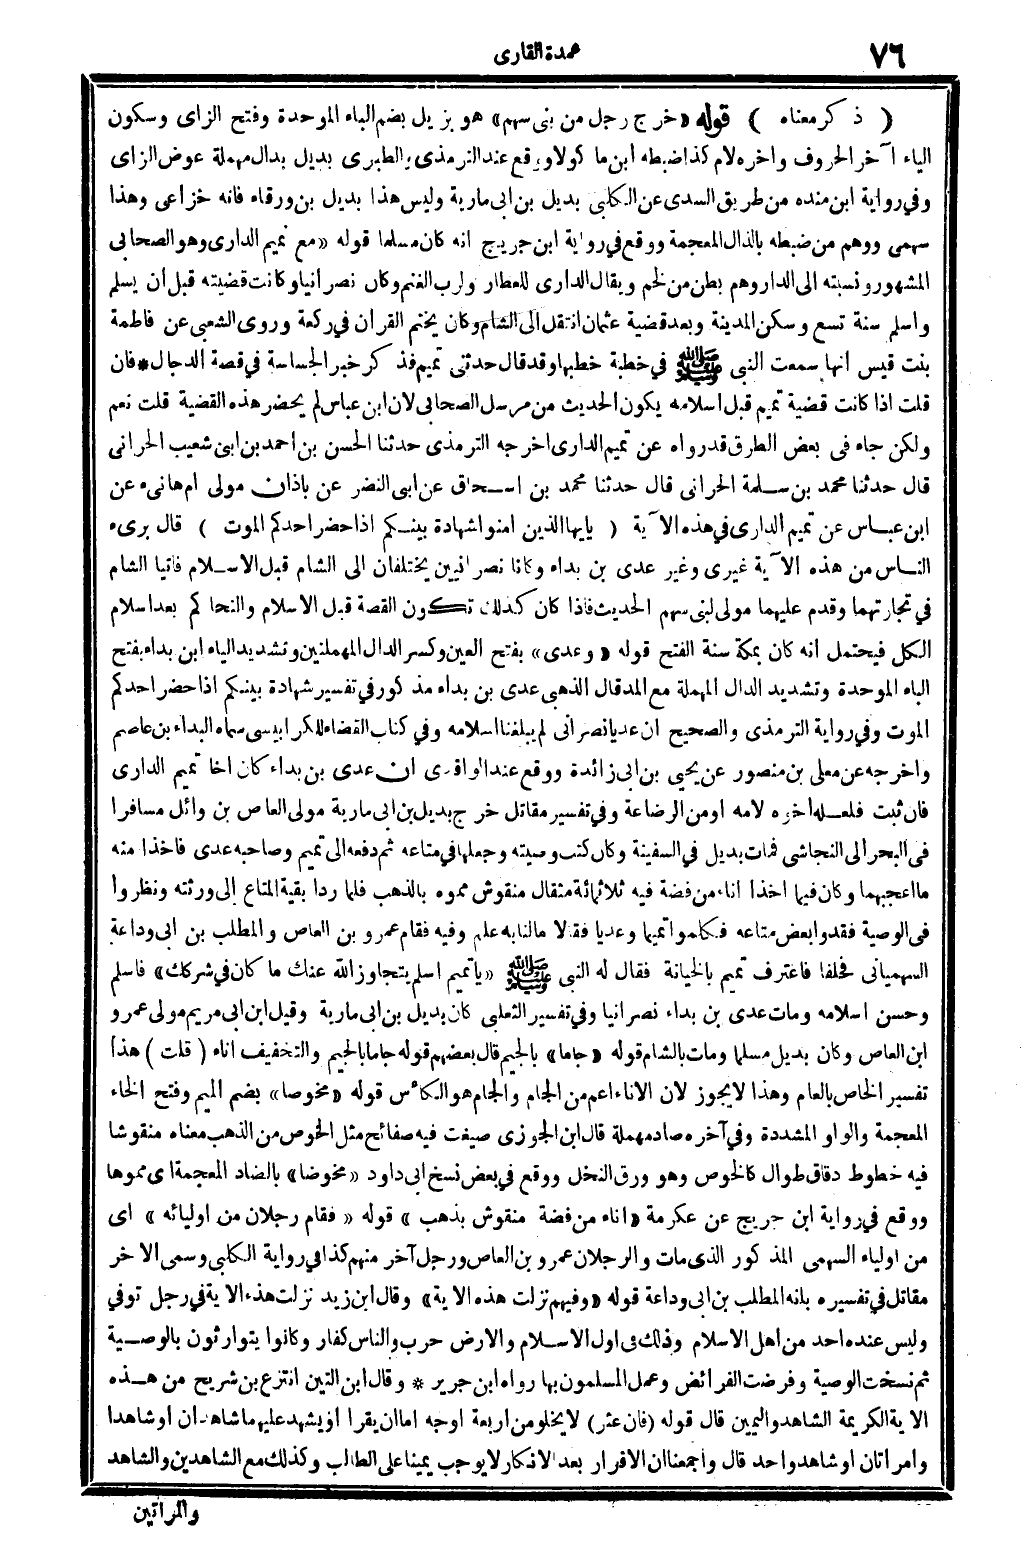 ٧٦
عمدة القارى
( ذكر معناه ) قوله «خرج رجل من بنى سهم» هو بزيل بضم الباء الموحدة وفتح الزاى وسكون
الياء آخر الحروف وآخره لام كذا ضبطه ابن ماكولا ووقع عند الترمذى والطبرى بديل بدال مهملة عوض الزاى
وفي رواية ابن منده من طريق السدى عن الكلبى بديل بن ابى مارية وليس هذا بديل بن ورقاء فانه خزاعى وهذا
سهمى ووهم من ضبطه بالذال المعجمة ووقع في رواية ابن جريج انه كان مسلما قوله «مع تميم الدارى وهو الصحابى
المشهور ونسبته الى الدار وهم بطن من لخم ويقال الدارى للعطار ولرب الغنم وكان نصرانيا وكانت قضيته قبل أن يسلم
واسلم سنة تسع وسكن المدينة وبعد قضية عثمان انتقل الى الشام وكان يختم القرآن في ركعة وروى الشعبى عن فاطمة
بنت قيس أنها سمعت النبى ﷺ في خطبة خطبها وقد قال حدثنى تميم فذكر خبر الجساسة في قصة الدجال * فان
قلت اذا كانت قضية تميم قبل اسلامه يكون الحديث من مرسل الصحابى لان ابن عباس لم يحضر هذه القضية قلت نعم
ولكن جاء فى بعض الطرق قد رواه عن تميم الدارى اخرجه الترمذى حدثنا الحسن بن احمد بن ابى شعيب الحرانى
قال حدثنا محمد بن سلمة الحرانى قال حدثنا محمد بن اسحاق عن ابى النضر عن باذان مولى ام هانىء عن
ابن عباس عن تميم الدارى في هذه الآية ( يايها الذين امنوا شهادة بينكم اذا حضر احدكم الموت ) قال برىء
الناس من هذه الآية غيرى وغير عدى بن بداء وكانا نصرانيين يختلفان الى الشام قبل الاسلام فاتيا الشام
في تجارتهما وقدم عليهما مولى لبنى سهم الحديث فاذا كان كذلك تكون القصة قبل الاسلام والتحاكم بعد اسلام
الكل فيحتمل انه كان بمكة سنة الفتح قوله «وعدى» بفتح العين وكسر الدال المهملتين وتشديد الياء ابن بداء بفتح
الباء الموحدة وتشديد الدال المهملة مع المد قال الذهبى عدى بن بداء مذكور في تفسير شهادة بينكم اذا حضر احدكم
الموت وفي رواية الترمذى والصحيح ان عديا نصرانى لم يبلغنا اسلامه وفي كتاب القضاء للكرابيسى سماه البداء بن عاصم
واخرجه عن معلى بن منصور عن يحيى بن ابى زائدة ووقع عند الواقدى ان عدى بن بداء كان اخا تميم الدارى
فان ثبت فلعله اخوه لامه او من الرضاعة وفي تفسير مقاتل خرج بديل بن ابى مارية مولى العاص بن وائل مسافرا
فى البحر الى النجاشى فمات بديل في السفينة وكان كتب وصيته وجعلها في متاعه ثم دفعه الى تميم وصاحبه عدى فاخذا منه
ما اعجبهما وكان فيما اخذا اناء من فضة فيه ثلاثمائة مثقال منقوش مموه بالذهب فلما ردا بقية المتاع إلى ورثته ونظروا
فى الوصية فقدوا بعض متاعه فكلموا تميما وعديا فقالا مالنا به علم وفيه فقام عمرو بن العاص والمطلب بن ابى وداعة
السهميانى فحلفا فاعترف تميم بالخيانة فقال له النبى ﷺ «ياتميم اسلم يتجاوز الله عنك ما كان في شركك» فاسلم
وحسن اسلامه ومات عدى بن بداء نصرانيا وفي تفسير الثعلبى كان بديل بن ابى مارية وقيل ابن ابى مريم مولى عمرو
ابن العاص وكان بديل مسلما ومات بالشام قوله «جاما» بالجيم قال بعضهم قوله جاما بالجيم والتخفيف اناء ( قلت ) هذا
تفسير الخاص بالعام وهذا لا يجوز لان الاناء اعم من الجام والجام هو الكأس قوله «مخوصا» بضم الميم وفتح الخاء
المعجمة والواو المشددة وفي آخره صاد مهملة قال ابن الجوزى صيغت فيه صفائح مثل الخوص من الذهب معناه منقوشا
فيه خطوط دقاق طوال كالخوص وهو ورق النخل ووقع في بعض نسخ ابى داود «مخوضا» بالضاد المعجمة اى مموها
ووقع في رواية ابن جريج عن عكرمة «اناء من فضة منقوش بذهب» قوله «فقام رجلان من اوليائه» اى
من اولياء السهمى المذكور الذى مات والرجلان عمرو بن العاص ورجل آخر منهم كذا في رواية الكلبى وسمى الآخر
مقاتل في تفسيره بانه المطلب بن ابى وداعة قوله «وفيهم نزلت هذه الآية» وقال ابن زيد نزلت هذه الآية في رجل توفي
وليس عنده احد من أهل الاسلام وذلك فى اول الاسلام والارض حرب والناس كفار وكانوا يتوارثون بالوصية
ثم نسخت الوصية وفرضت الفرائض وعمل المسلمون بها رواه ابن جرير * وقال ابن التين انتزع بن شريح من هذه
الآية الكريمة الشاهد واليمين قال قوله (فان عثر) لا يخلو من اربعة اوجه اما ان يقرا أو يشهد عليهما شاهدان او شاهدا
وامراتان او شاهد واحد قال واجمعنا ان الاقرار بعد الانكار لا يوجب يمينا على الطالب وكذلك مع الشاهدين والشاهد
والمراتين